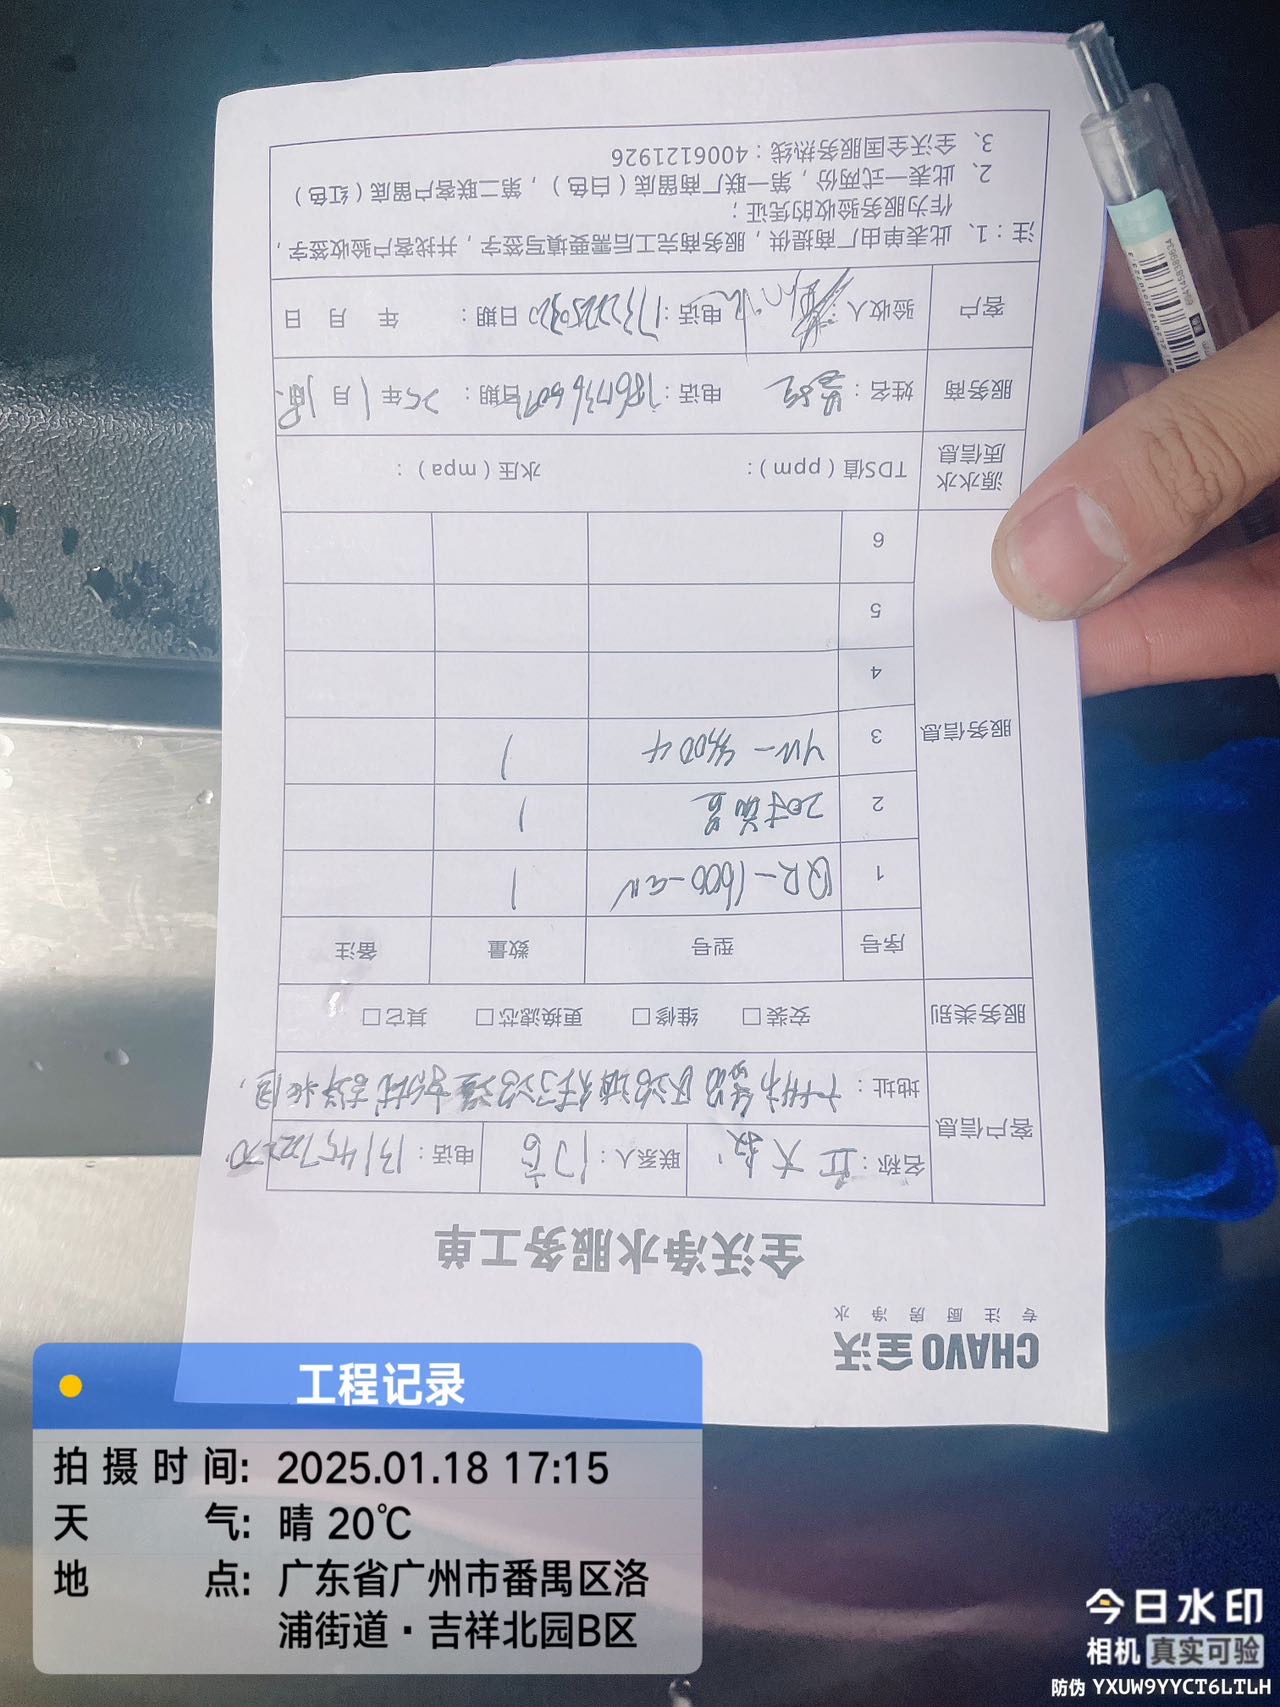 CHAVO 全沃
专注厨房净水
全沃净水服务工单
客户信息
名称： 大叔 联系人： 电话：13145722270
地址：广州市番禺区洛浦街
服务类别 安装□ 维修□ 更换滤芯□ 其它□
服务信息
序号 型号 数量 备注
1 QR-1600-GN 1
2 20寸 1
3 1
4
5
6
源水水质信息 TDS值（ppm）： 水压（mpa）：
服务商 姓名： 电话： 日期：25年1月18日
客户 验收人： 电话： 日期： 年 月 日
注：1、此表单由厂商提供，服务商完工后需要填写签字，并找客户验收签字，
作为服务验收的凭证；
2、此表一式两份，第一联厂商留底（白色），第二联客户留底（红色）
3、全沃全国服务热线：4006121926
工程记录
拍摄时间: 2025.01.18 17:15
天气: 晴 20℃
地点: 广东省广州市番禺区洛
浦街道·吉祥北园B区
今日水印
相机 真实可验
防伪 YXUW9YYCT6LTLH